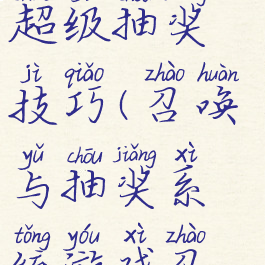 超级抽奖
jì qiǎo zhào huàn
技巧(召唤
yǔ chōu jiǎng xì
与抽奖系
tǒng yóu xì zhào
统游戏召